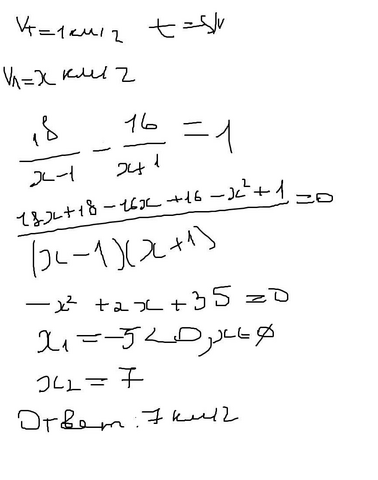 Vт = 1 км/ч t = S/V
Vл = x км/ч
18/(x-1) - 16/(x+1) = 1
(18x+18-16x+16-x²+1)/((x-1)(x+1)) = 0
-x² + 2x + 35 = 0
x₁ = -5 < 0, x ∈ ∅
x₂ = 7
Ответ: 7 км/ч